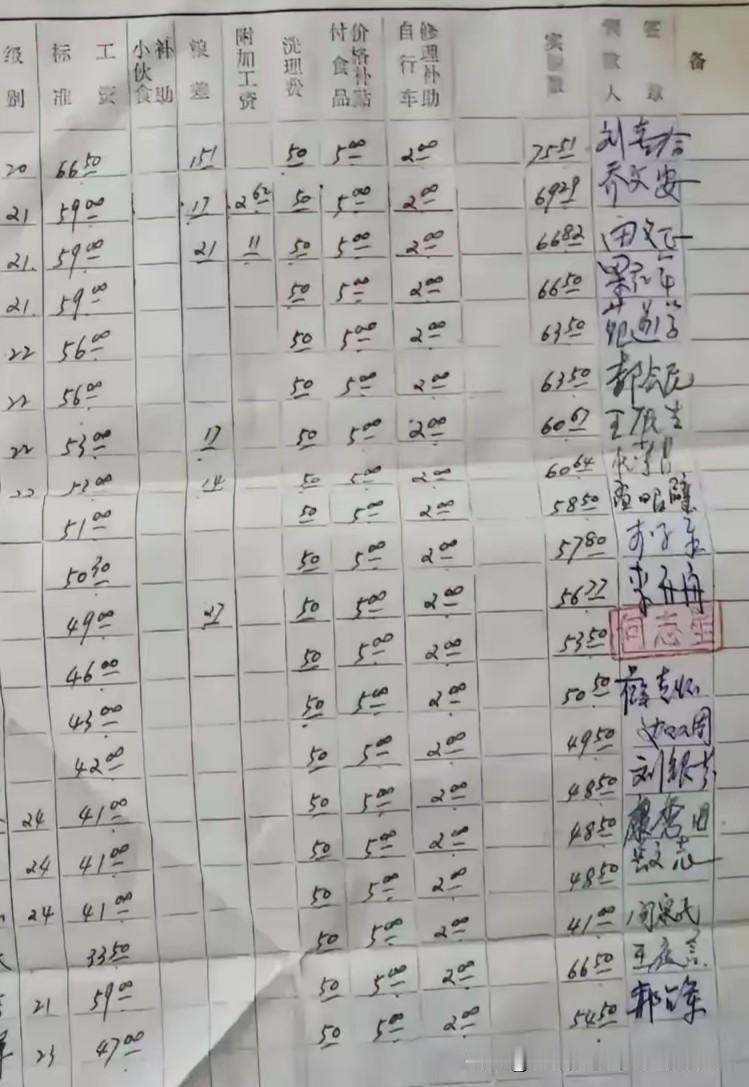 级别 标准工资 小伙食补助 粮差 附加工资 洗理费 付食品价格补贴 自行车修理补助 实领数 领款人签章 备
20 66.50 1.51 50 5.00 2.00 75.51
21 59.00 17 2.62 50 5.00 2.00 69.29 乔文安
21. 59.00 21 11 50 5.00 2.00 66.82
21. 59.00 50 5.00 2.00 66.50
22 56.00 50 5.00 2.00 63.50
22 56.00 50 5.00 2.00 63.50
22 53.00 17 50 5.00 2.00 60.67
22 53.00 14 50 5.00 2.00 60.64
51.00 50 5.00 2.00 58.50
50.30 50 5.00 2.00 57.80
49.00 27 50 5.00 2.00 56.77
46.00 50 5.00 2.00 53.50 何志星
43.00 50 5.00 2.00 50.50
42.00 50 5.00 2.00 49.50
24 41.00 50 5.00 2.00 48.50
24 41.00 50 5.00 2.00 48.50
24 41.00 50 5.00 2.00 48.50
33.50 50 5.00 2.00 41.00
21 59.00 50 5.00 2.00 66.50
23 47.00 50 5.00 2.00 54.50